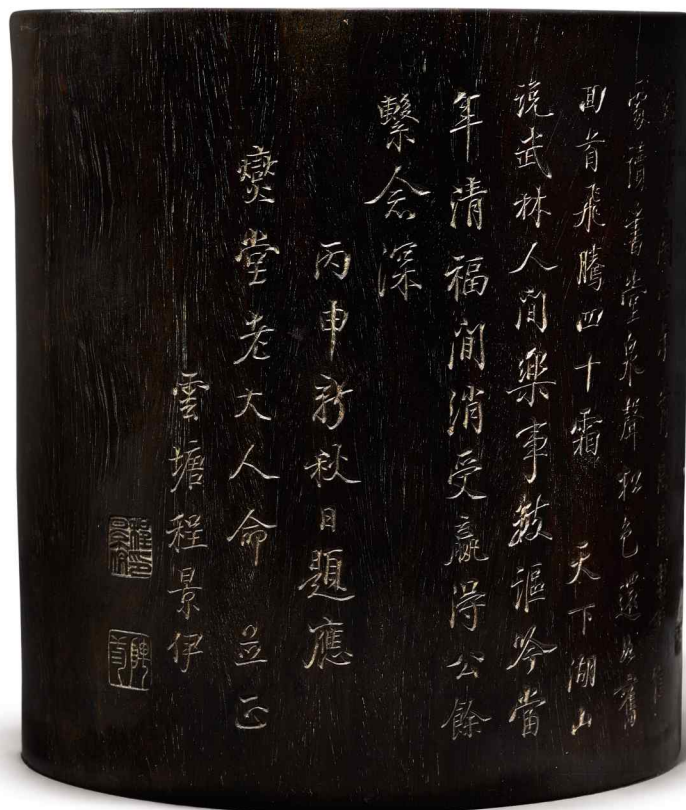 家讀書堂泉聲松色還如舊
回首飛騰四十霜 天下湖山
說武林人間樂事數謳吟當
年清福閒消受贏得公餘
繫念深
丙申新秋日題應
燮堂老大人命 並正
雲塘程景伊